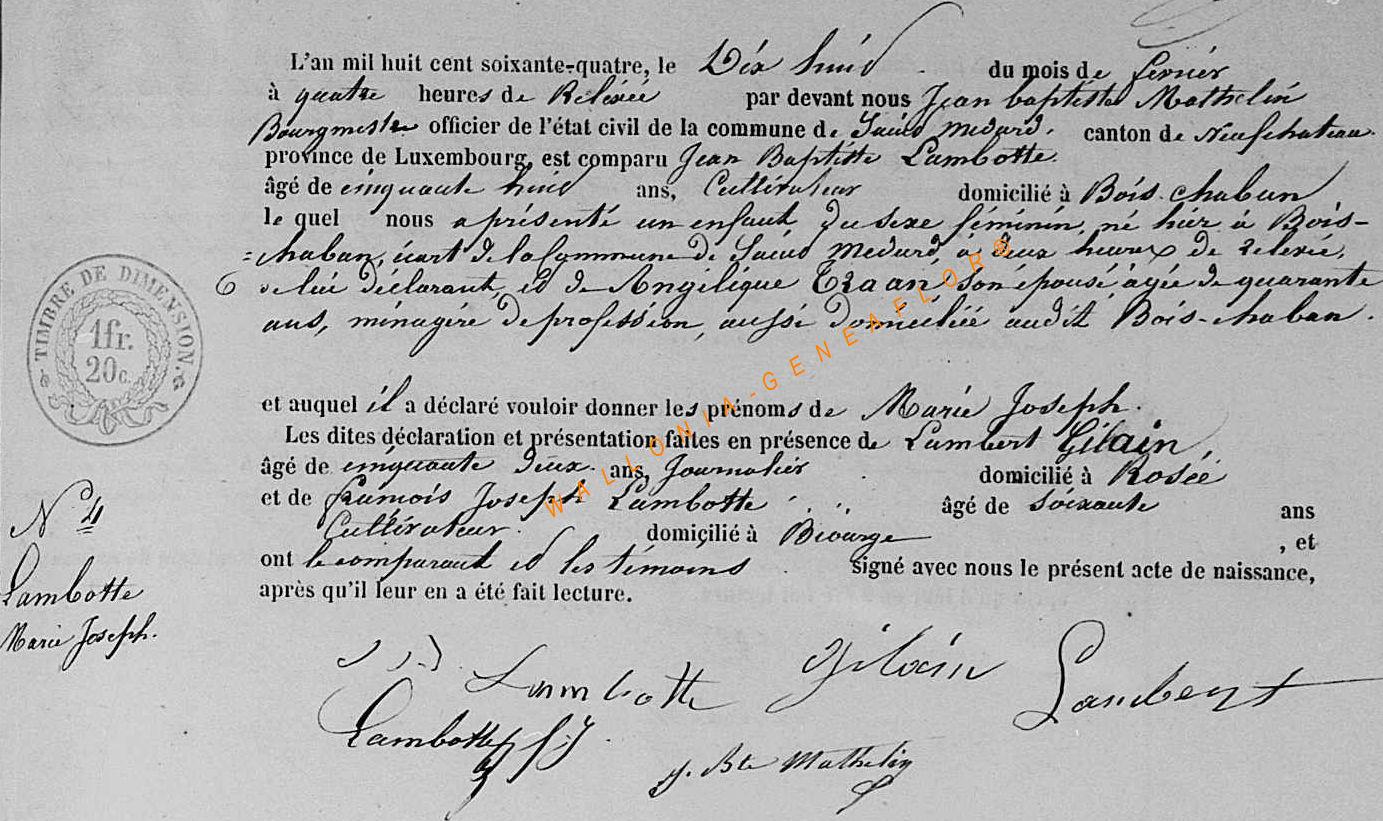 L'an mil huit cent soixante-quatre, le Dix huit du mois de fevrier
à quatre heures de Relevée par devant nous Jean baptiste Mathelin
Bourgmestre officier de l'état civil de la commune de Saint Medard, canton de Neufchateau.
province de Luxembourg, est comparu Jean Baptiste Lambotte.
âgé de cinquante huit ans, Cultivateur domicilié à Bois-chaban
le quel nous a présenté un enfant du sexe féminin, né hier à Bois-
=chaban, écart de la Commune de Saint Medard, à deux heures de relevée,
de lui déclarant, et de Angélique son épouse âgée de quarante
ans, ménagère de profession, aussi domiciliée audit Bois-chaban.
TIMBRE DE DIMENSION.
1fr.
20c.
et auquel il a déclaré vouloir donner les prénoms de Marie Joseph.
Les dites déclaration et présentation faites en présence de Lambert Gilain,
âgé de cinquante deux ans, Journalier domicilié à Rosée
et de françois Joseph Lambotte âgé de soixante ans
Cultivateur. domicilié à Biourge , et
ont le comparant et les témoins signé avec nous le présent acte de naissance,
après qu'il leur en a été fait lecture.
N° 4
Lambotte
Marie Joseph.
Lambotte
gilain Lambert
Lambotte f. j.
j. Bte Mathelin
WALLONIA-GENEAFLORE